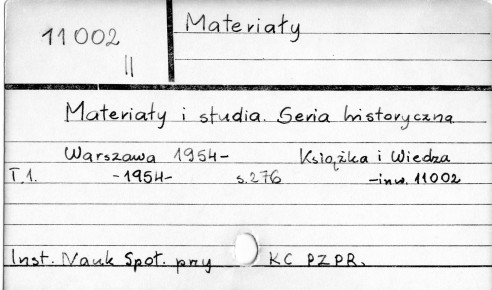 11 002
II
Materiały
Materiały i studia. Seria historyczna
Warszawa 1954- Książka i Wiedza
T.1. -1954- s.276 -inw. 11002
Inst. Nauk Społ. przy KC PZPR.